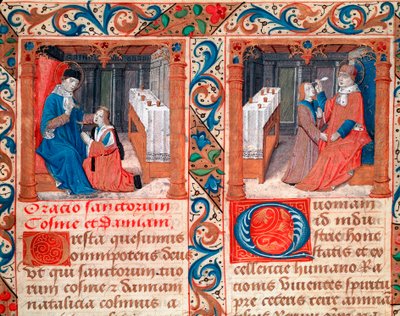 Oracio sanctorum
Cosme et Damiani
Presta quesumus
omnipotens deus
vt qui sanctorum tuo
rum cosme et damiani
natalicia colimus a
Quoniam
id indu
strie hones
tatis et ex
cellencie humano Ra
cionis viventes spiritu
pre ceteris care anima